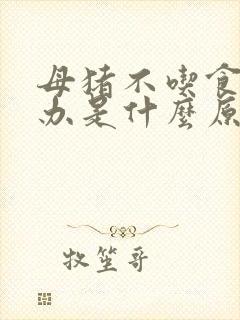 母猪不喫食
办是什麼原
牧笙哥